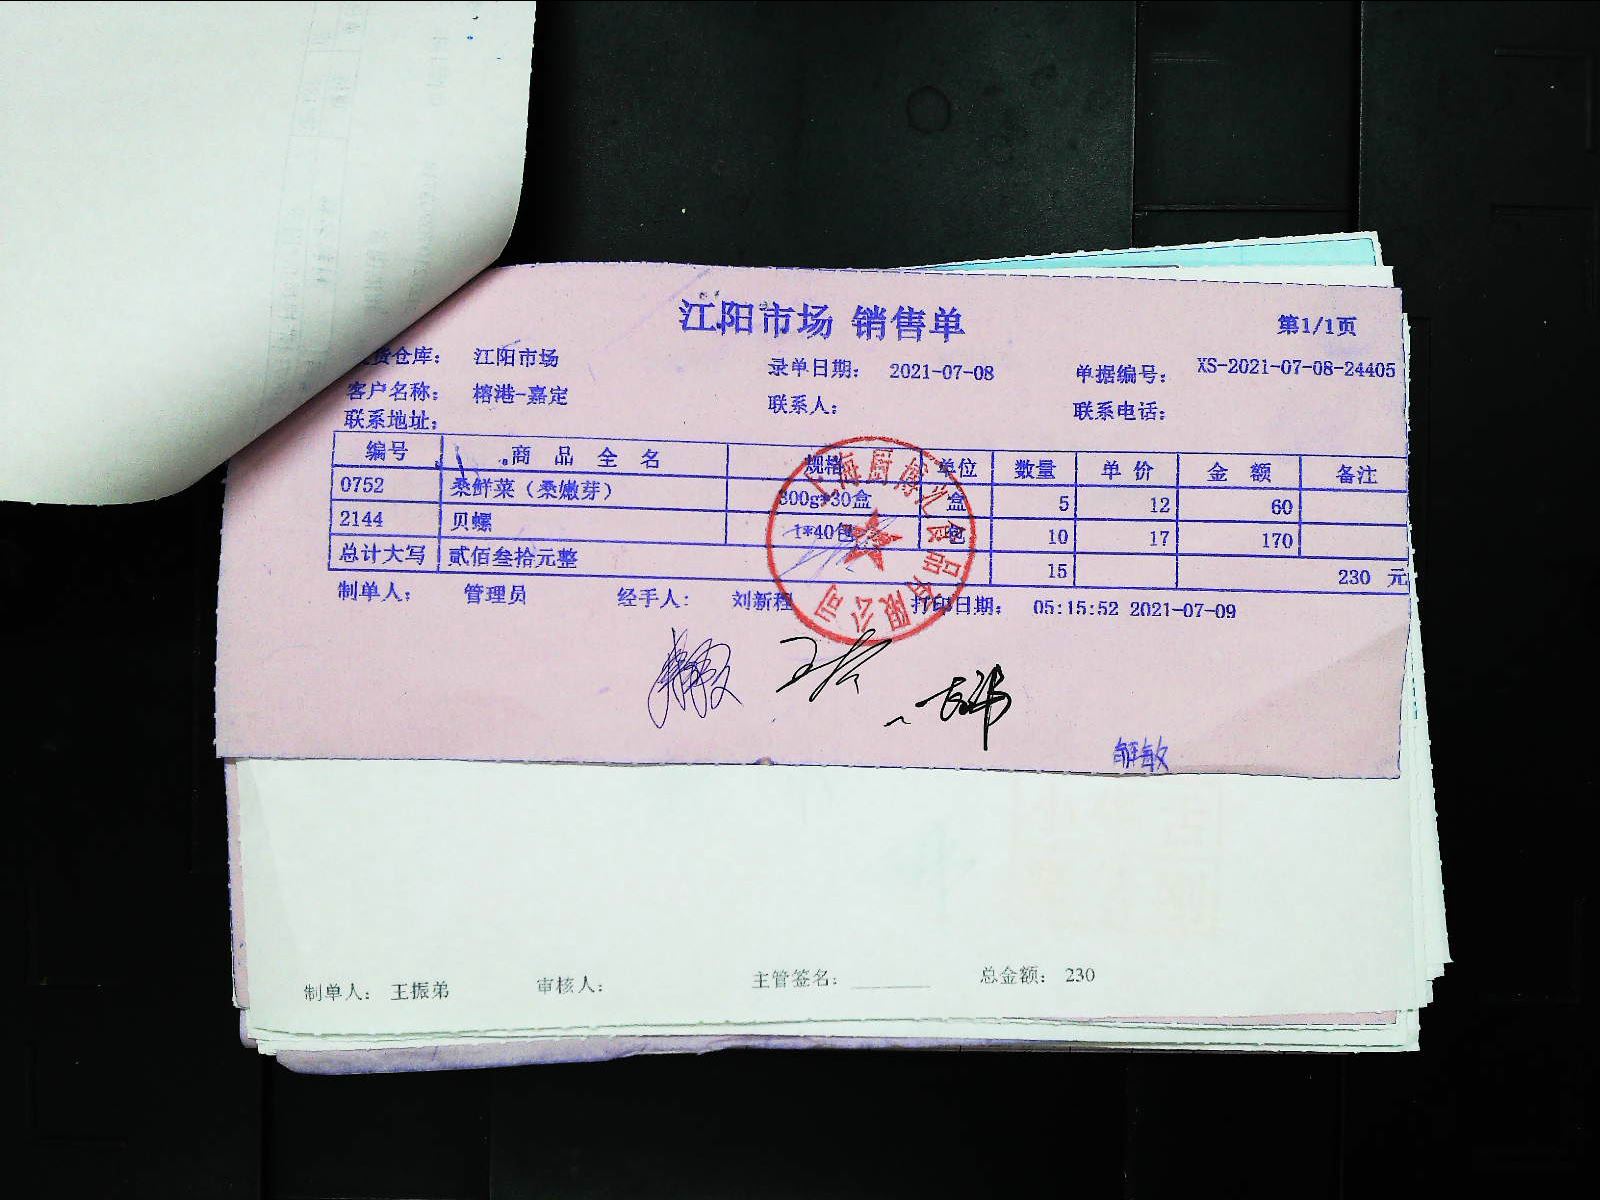 江阳市场 销售单
第1/1页
货仓库： 江阳市场 录单日期： 2021-07-08 单据编号： XS-2021-07-08-24405
客户名称： 榕港-嘉定 联系人： 联系电话：
联系地址：
编号 商品全名 规格 单位 数量 单价 金额 备注
0752 桑鲜菜（桑嫩芽） 300g*30盒 盒 5 12 60
2144 贝螺 1*40包 包 10 17 170
总计大写 贰佰叁拾元整 15 230 元
制单人： 管理员 经手人： 刘新程 打印日期： 05:15:52 2021-07-09
上海厨博 食品有限公司
解敏
制单人： 王振弟 审核人： 主管签名： 总金额： 230